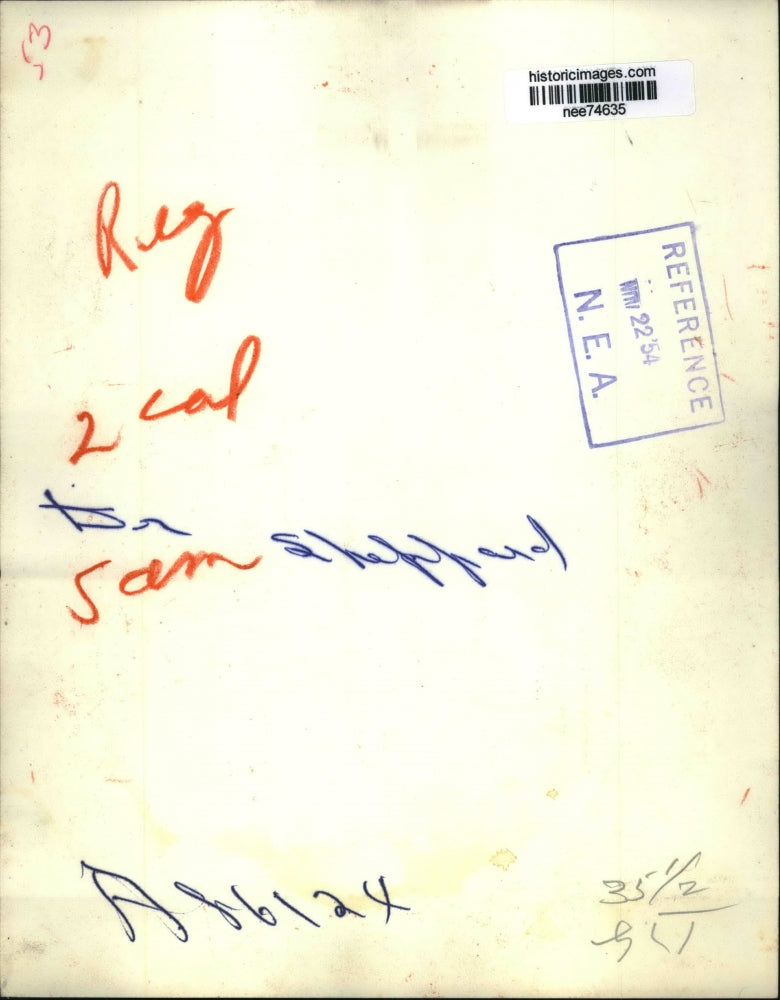 historicimages.com
nee74635
Reg
REFERENCE
22 '54
N. E. A.
2 col
Dr
Sam Sheppard
A86124
35 1/2